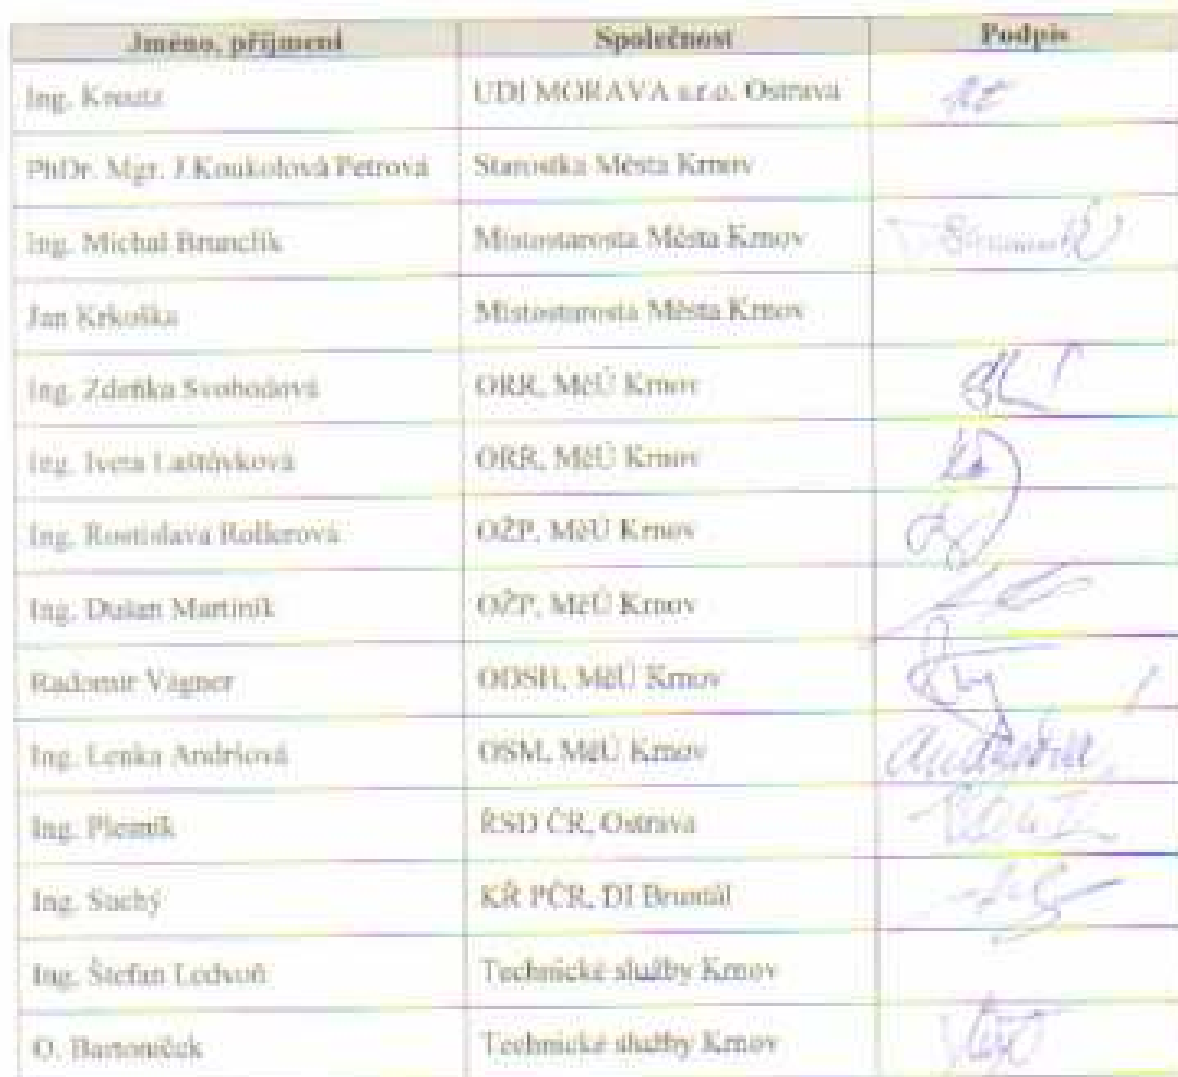 Jméno, příjmení Společnost Podpis
Ing. Kreutz UDI MORAVA s.r.o. Ostrava
PhDr. Mgr. J.Koukolová Petrová Starostka Města Krnov
Ing. Michal Brunclík Místostarosta Města Krnov
Jan Krkoška Místostarosta Města Krnov
Ing. Zdeňka Svobodová ORR, MěÚ Krnov
Ing. Iveta Laštůvková ORR, MěÚ Krnov
Ing. Rostislava Rollerová OŽP, MěÚ Krnov
Ing. Dušan Martiník OŽP, MěÚ Krnov
Radomír Vágner ODSH, MěÚ Krnov
Ing. Lenka Andršová OSM, MěÚ Krnov
Ing. ŘSD ČR, Ostrava
Ing. Suchý KŘ PČR, DI Bruntál
Ing. Štefan Ledvoň Technické služby Krnov
O. Bartoníček Technické služby Krnov